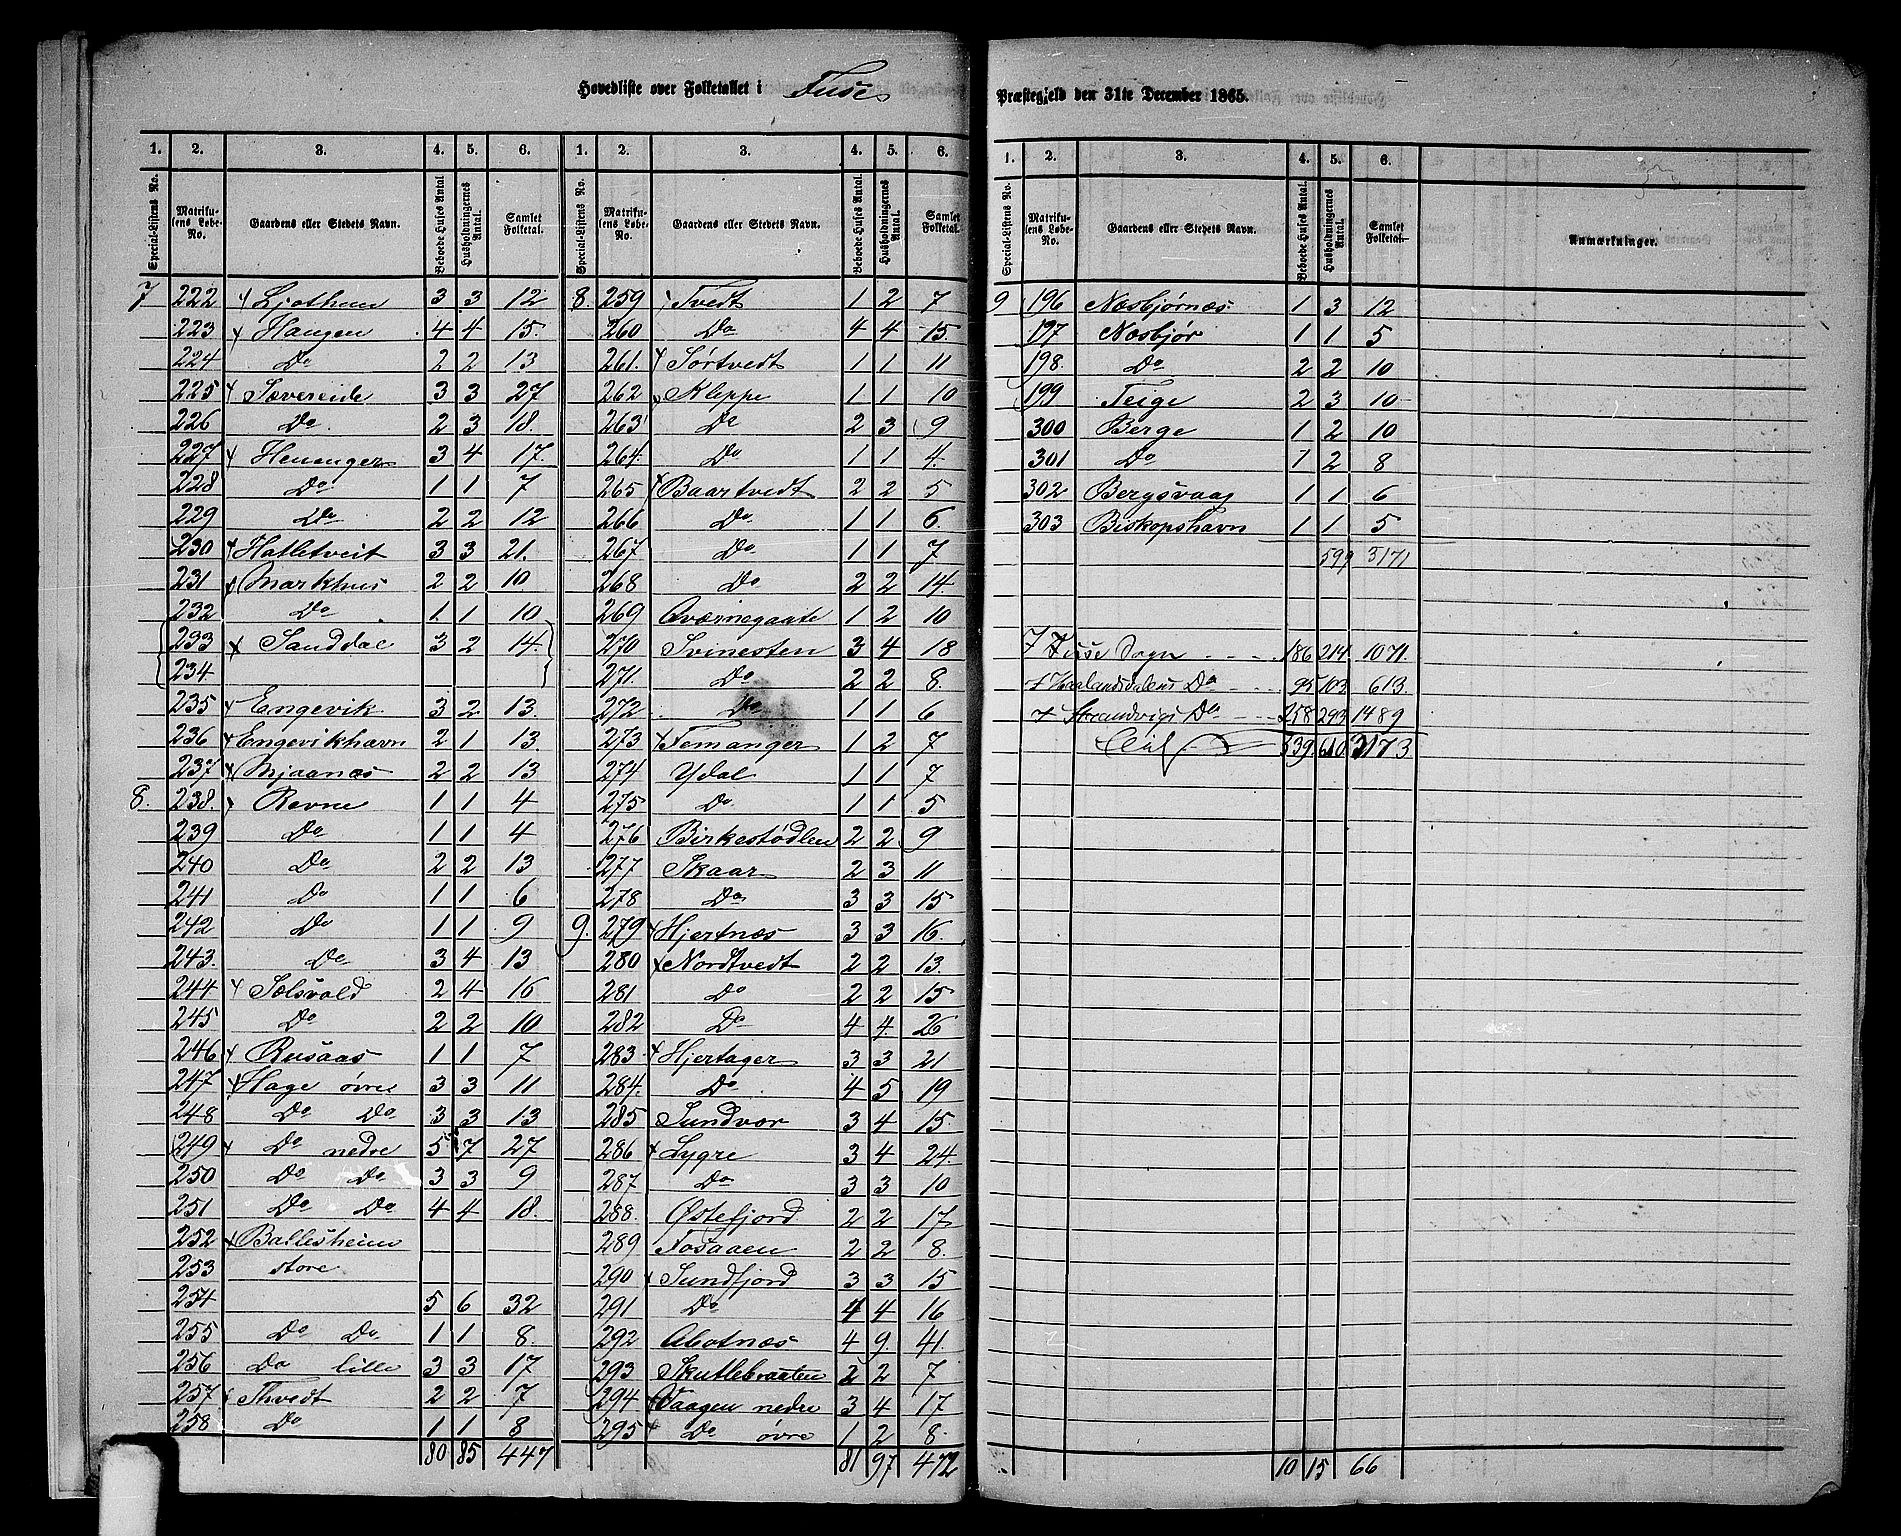 Hovedliste over Folketallet i Fuse Præstegjeld den 31te December 1865.
1. 2. 3. 4. 5. 6. 1. 2. 3. 4. 5. 6.
Special-Listens No. Matrikulens Løbe-No. Gaardens eller Stedets Navn. Beboede Huses Antal. Husholdningernes Antal. Samlet Folketal. Special-Listens No. Matrikulens Løbe-No. Gaardens eller Stedets Navn. Beboede Huses Antal. Husholdningernes Antal. Samlet Folketal.
7 222 Ljothun 3 3 12
223 Haugen 4 4 15.
224 Do 2 2 13
225 Sævereide 3 3 27
226 Do. 2 3 18.
227 Henanger 3 4 17
228 Do 1 1 7
229 Do 2 2 12
230 Hatletveit 3 3 21.
231 Markhus 2 2 10.
232 Do 1. 1 10
233 Sanddal 3 2 14.
234
235 Engevik 3 2 13.
236 Engevikhavn 2 1 13
237 Mjaanæs 2 2 13
8. 238. Revne 1 1 4
239 Do 1 1 4
240 Do 2 2 13
241 Do 1 1 6
242 Do 1 1 9
243. Do 3 4 13
244 Sælsvold 2 4 16
245 Do 2 2 10
246 Rusaas 1 1 7
247 Hage øvre 3 3 11
248 Do Do 3 3 13
249 Do nedre 5 7 27
250 Do Do 3 3 9
251 Do Do 4 4 18.
252 Ballesheim
253 store
254 5 6 32
255 Do Do 1 1 8.
256 Do lille 3 3 17
257 Thvedt 2 2 7
258 Do 1 1 8
80 85 447
8. 259 Tvedt 1 2 7
260 Do 4 4 15.
261. Sørtvedt 1 1 11
262 Kleppe 1 1 10
263 Do 2 3 9
264. Do 1 1 4.
265 Baartvedt 2 2 5
266 Do 1 1 6.
267 Do 1 1 7
268 Do 2 2 14.
269 Qværnegaate 1 2 10
270 Svinesten 3 4 18
271. Do 2 2 8.
272 Do 1 1 6
273 Femanger 1 2 7
274 Ydal 1 1 7
275 Do 1 1 5
276 Birkestødlen 2 2 9
277 Skaar 2 3 11
278 Do 3 3 15
9. 279 Hjertnæs 3 3 16.
280 Nordtvedt 2 2 13.
281 Do 2 2 15
282 Do 4 4. 26
283. Hjertager 3 3 21
284. Do 4 5 19
285 Sundvor 3 4 15.
286 Lygre 3 4 24.
287 Do 3 3 10
288. Østefjord 2 2 17
289 Fosaaen 2 2 8.
290 Sundfjord 3 3 15
291 Do 4 4 16
292 Abotnæs 4 9. 41.
293 Skutlebraaten 2 2 7
294 Vaagen nedre 3 4 17
295 Do øvre 1 2 8.
81 97 472
1. 2. 3. 4. 5. 6.
Special-Listens No. Matrikulens Løbe-No. Gaardens eller Stedets Navn. Beboede Huses Antal. Husholdningernes Antal. Samlet Folketal. Anmærkninger.
9 196 Næsbjørnæs 1 3 12
197 Næsbjør 1 1 5
198. Do 2 2 10
199 Teige 2 3 10
300 Berge 1 2 10
301 Do 1 2 8
302 Bergsvaag 1 1 6
303 Biskopshavn 1 1 5
599 3171
7 Fuse Sogn 186 214. 1071.
+ Haalandsdalens Do 95 103 613.
+ Strandvigs Do 258 293 1489
539. 610 3173
10 15 66